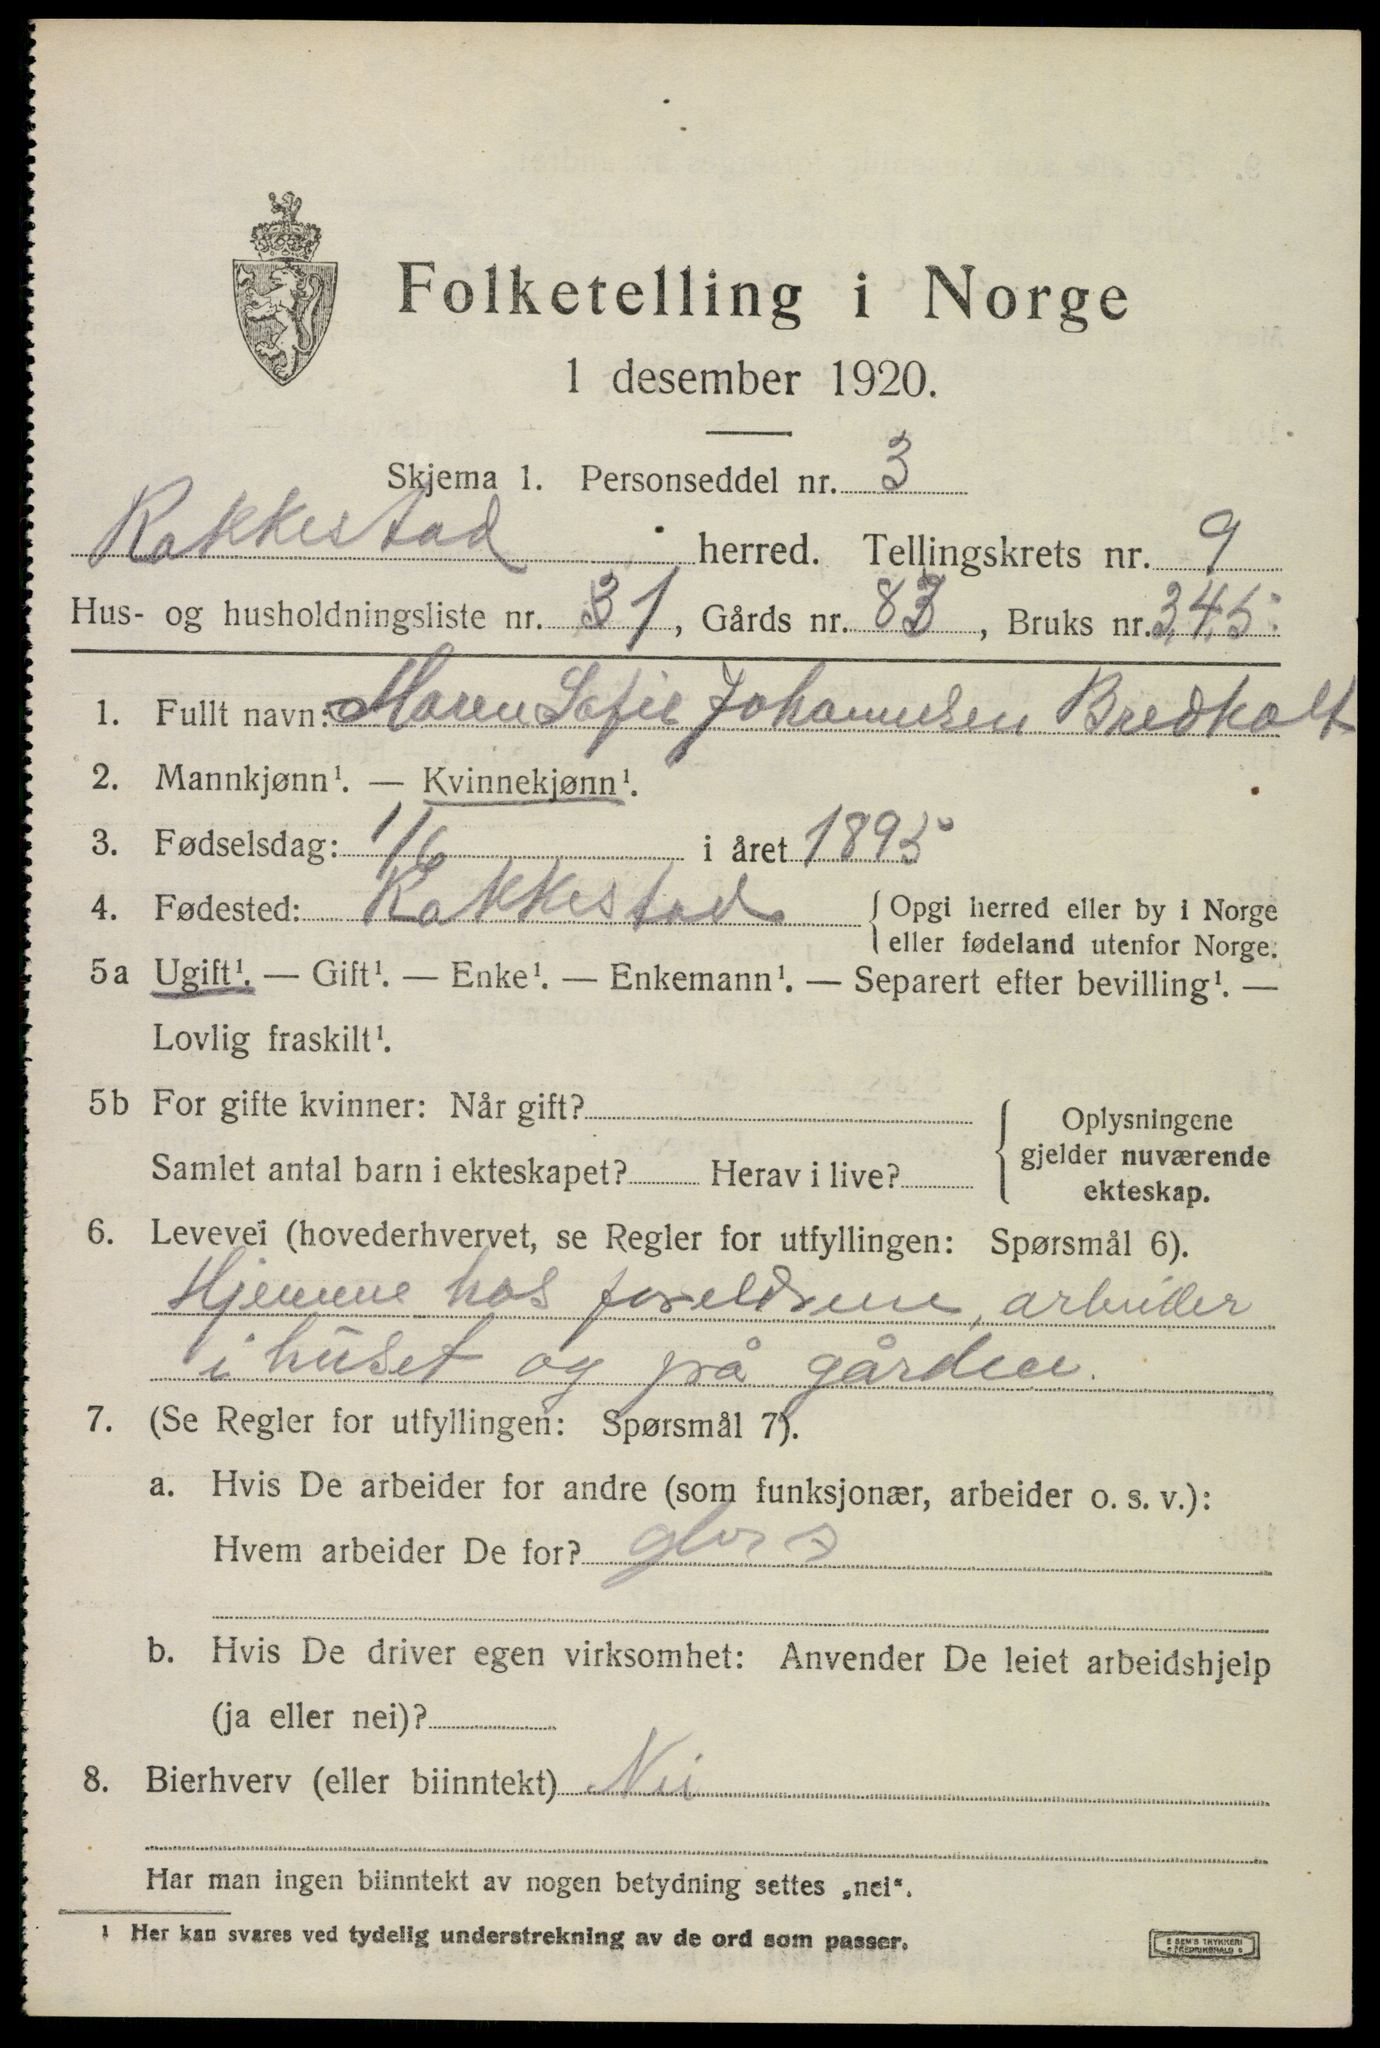 Folketelling i Norge
1 desember 1920.
Skjema 1. Personseddel nr. 3
Rakkestad herred. Tellingskrets nr. 9
Hus- og husholdningsliste nr. 31, Gårds nr. 83, Bruks nr. 3,4,5.
1. Fullt navn: Maren Sofie Johannesen Bredholt
2. Mannkjønn¹. — Kvinnekjønn¹.
3. Fødselsdag: 1/6 i året 1895
4. Fødested: Rakkestad { Opgi herred eller by i Norge
eller fødeland utenfor Norge.
5a Ugift¹. — Gift¹. — Enke¹. — Enkemann¹. — Separert efter bevilling¹. —
Lovlig fraskilt¹.
5b For gifte kvinner: Når gift?
Samlet antal barn i ekteskapet? Herav i live?
Oplysningene
gjelder nuværende
ekteskap.
6. Levevei (hovederhvervet, se Regler for utfyllingen: Spørsmål 6).
Hjemme hos foreldrene, arbeider
i huset og på gården.
7. (Se Regler for utfyllingen: Spørsmål 7).
a. Hvis De arbeider for andre (som funksjonær, arbeider o. s. v.):
Hvem arbeider De for?
b. Hvis De driver egen virksomhet: Anvender De leiet arbeidshjelp
(ja eller nei)?
8. Bierhverv (eller biinntekt) Nei
Har man ingen biinntekt av nogen betydning settes „nei“.
¹ Her kan svares ved tydelig understrekning av de ord som passer.
E SEM'S TRYKKERI
FREDRIKSHALD